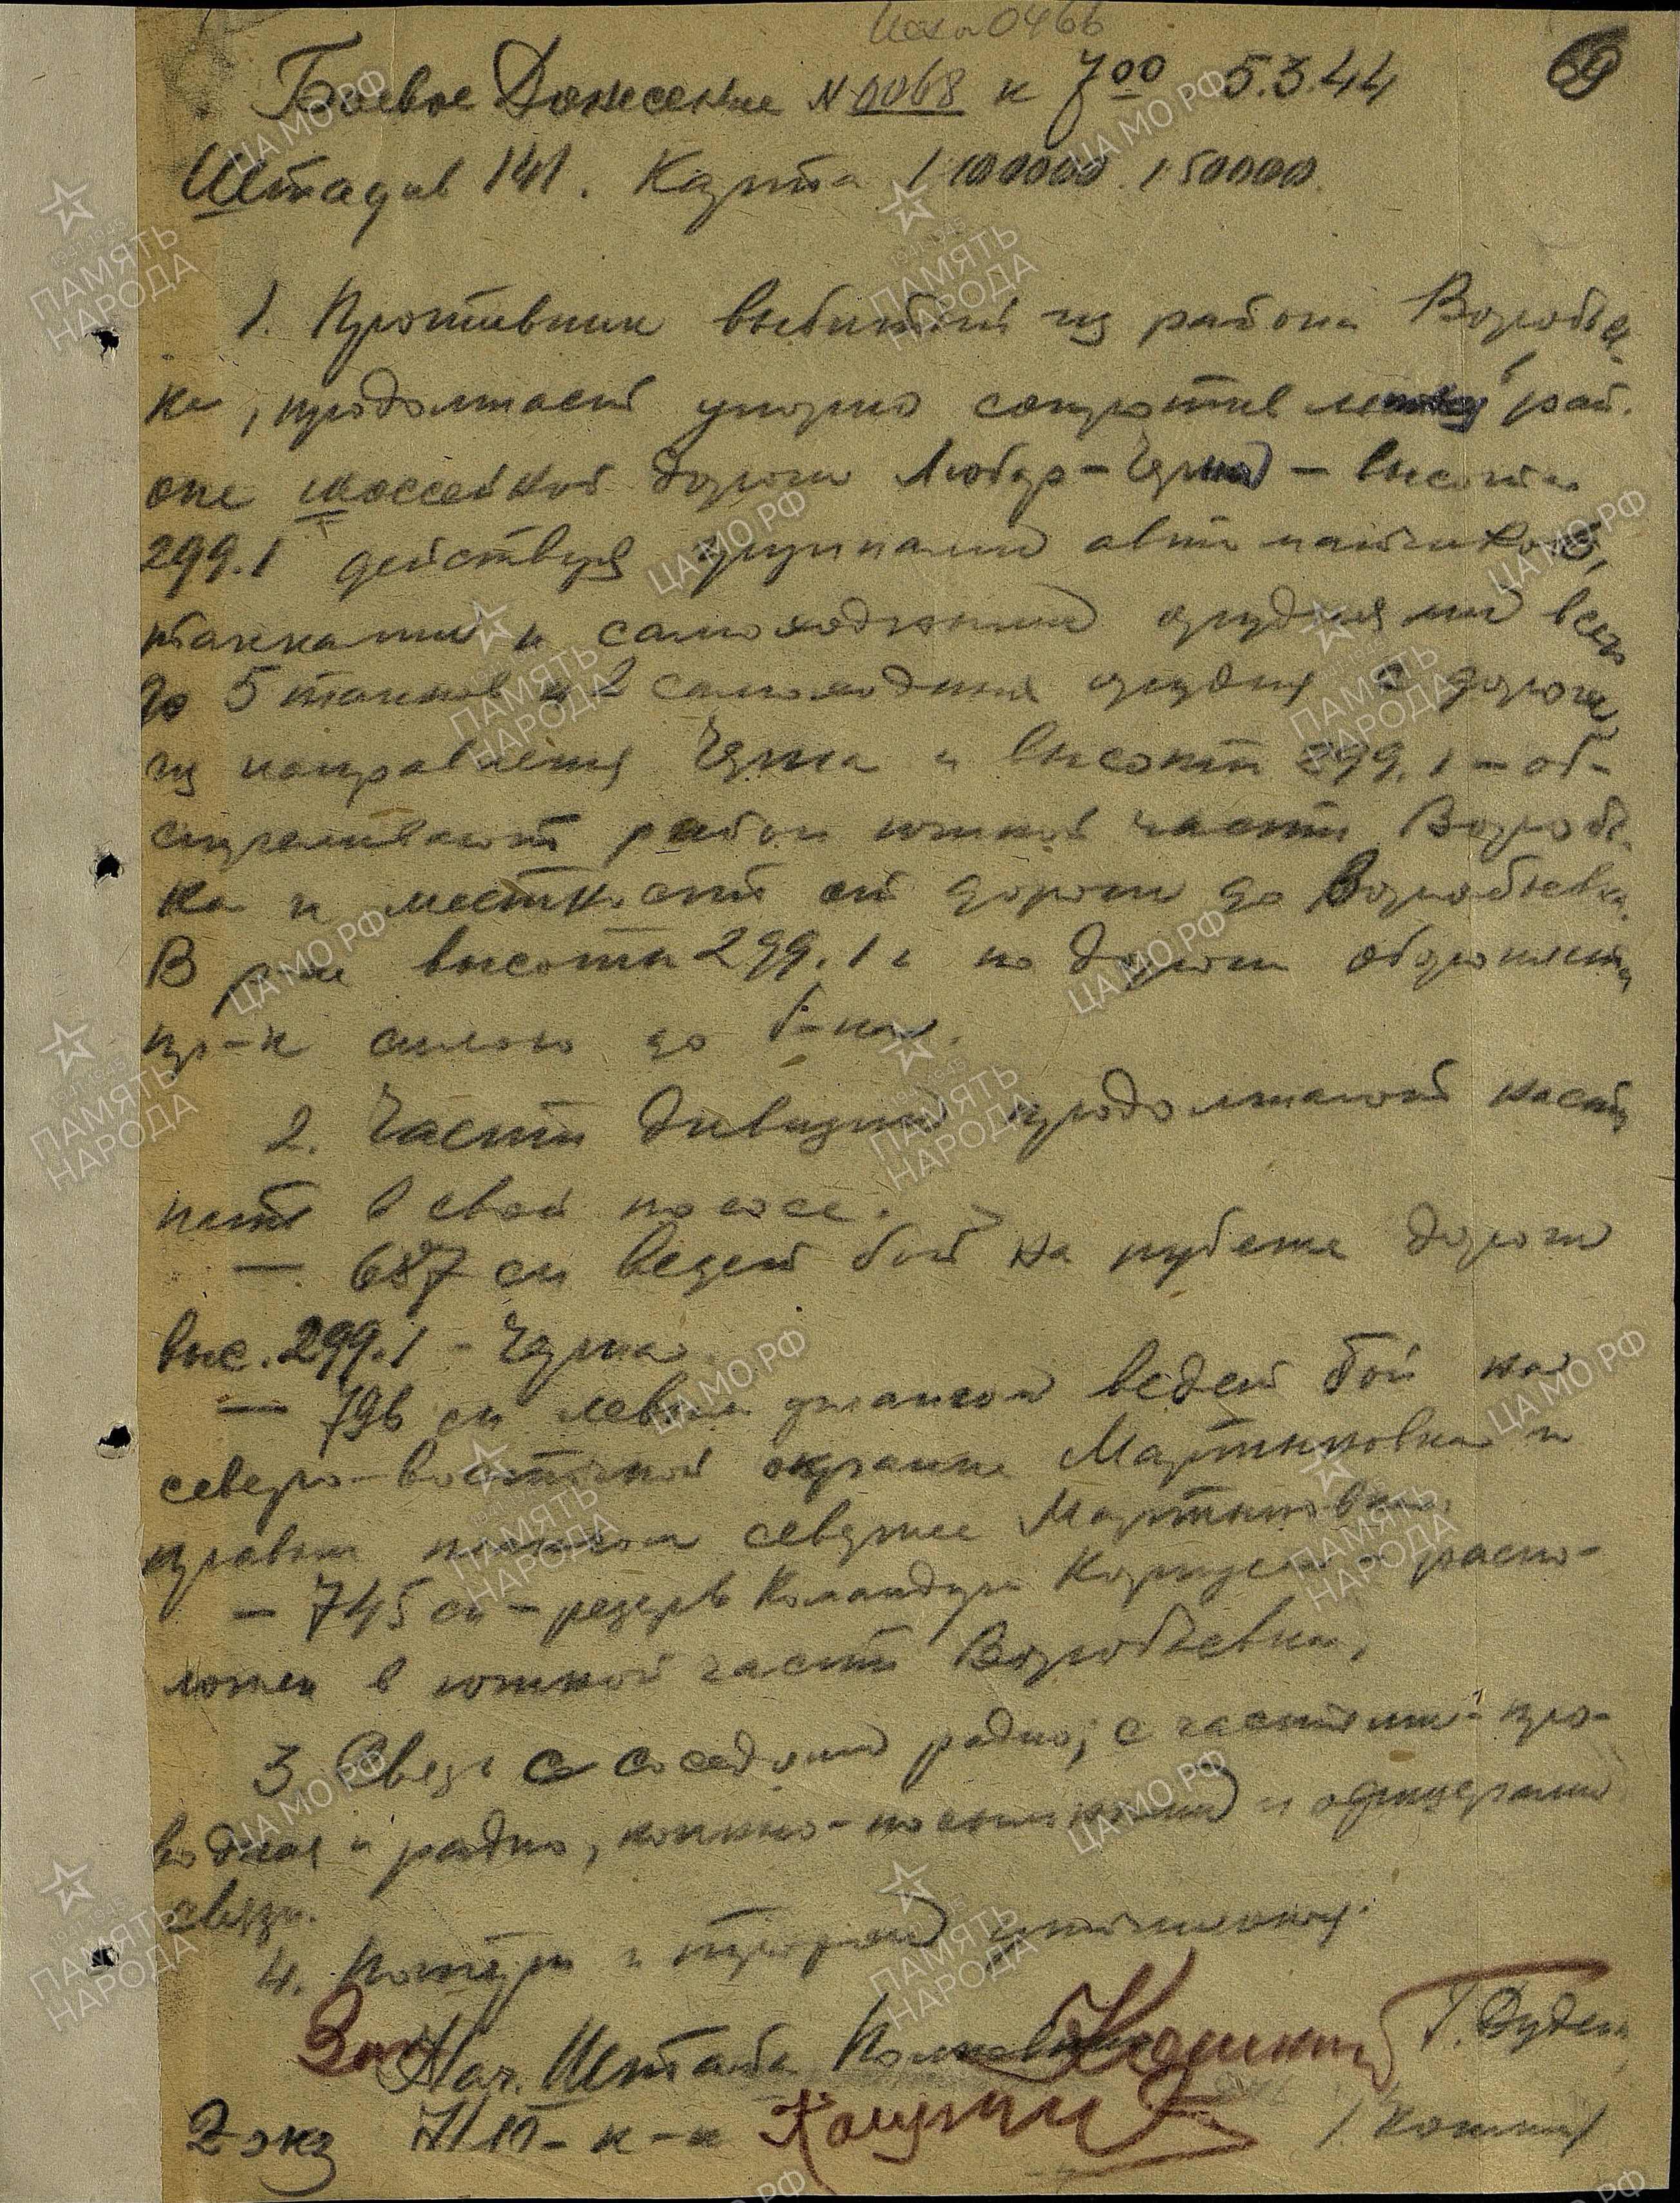 Исх 0466
69
Боевое Донесение № 0068 к 7 00 5.3.44
Штадив 141. Карта 1:100000. 1:50000.
1. Противник выбитый из района Воробьев-
ка, продолжает упорно сопротивление в рай-
оне шоссейной дороги Любар – Чорна – высота
299.1 действуя группами автоматчиков,
танками и самоходными орудиями всего
до 5 танков и 2 самоходных орудия с дороги
из направления Чорна и высоты 299.1 – об-
стреливают район южной части Воробьев-
ка и местность от дороги до Воробьевка.
В р-не высоты 299.1 и по дороги обороняется
пр-к силою до б-на.
2. Части дивизии продолжают насту-
пать в своей полосе.
– 687 сп ведет бой на рубеже дороги
выс. 299.1 – Чорна.
– 796 сп левым флангом ведет бой на
северо-восточной окраине Мартыновка и
правым флангом севернее Мартыновка.
– 745 сп – резерв Командира Корпуса распо-
ложен в южной части Воробьевка,
3 Связь с соседями радио, с частями – про-
водная и радио, конно-посыльными и офицерами
связи.
4. Потери и трофеи уточняются.
Зам Нач. Штаба Полковник Г. Дудник
2 экз НШ – к-к